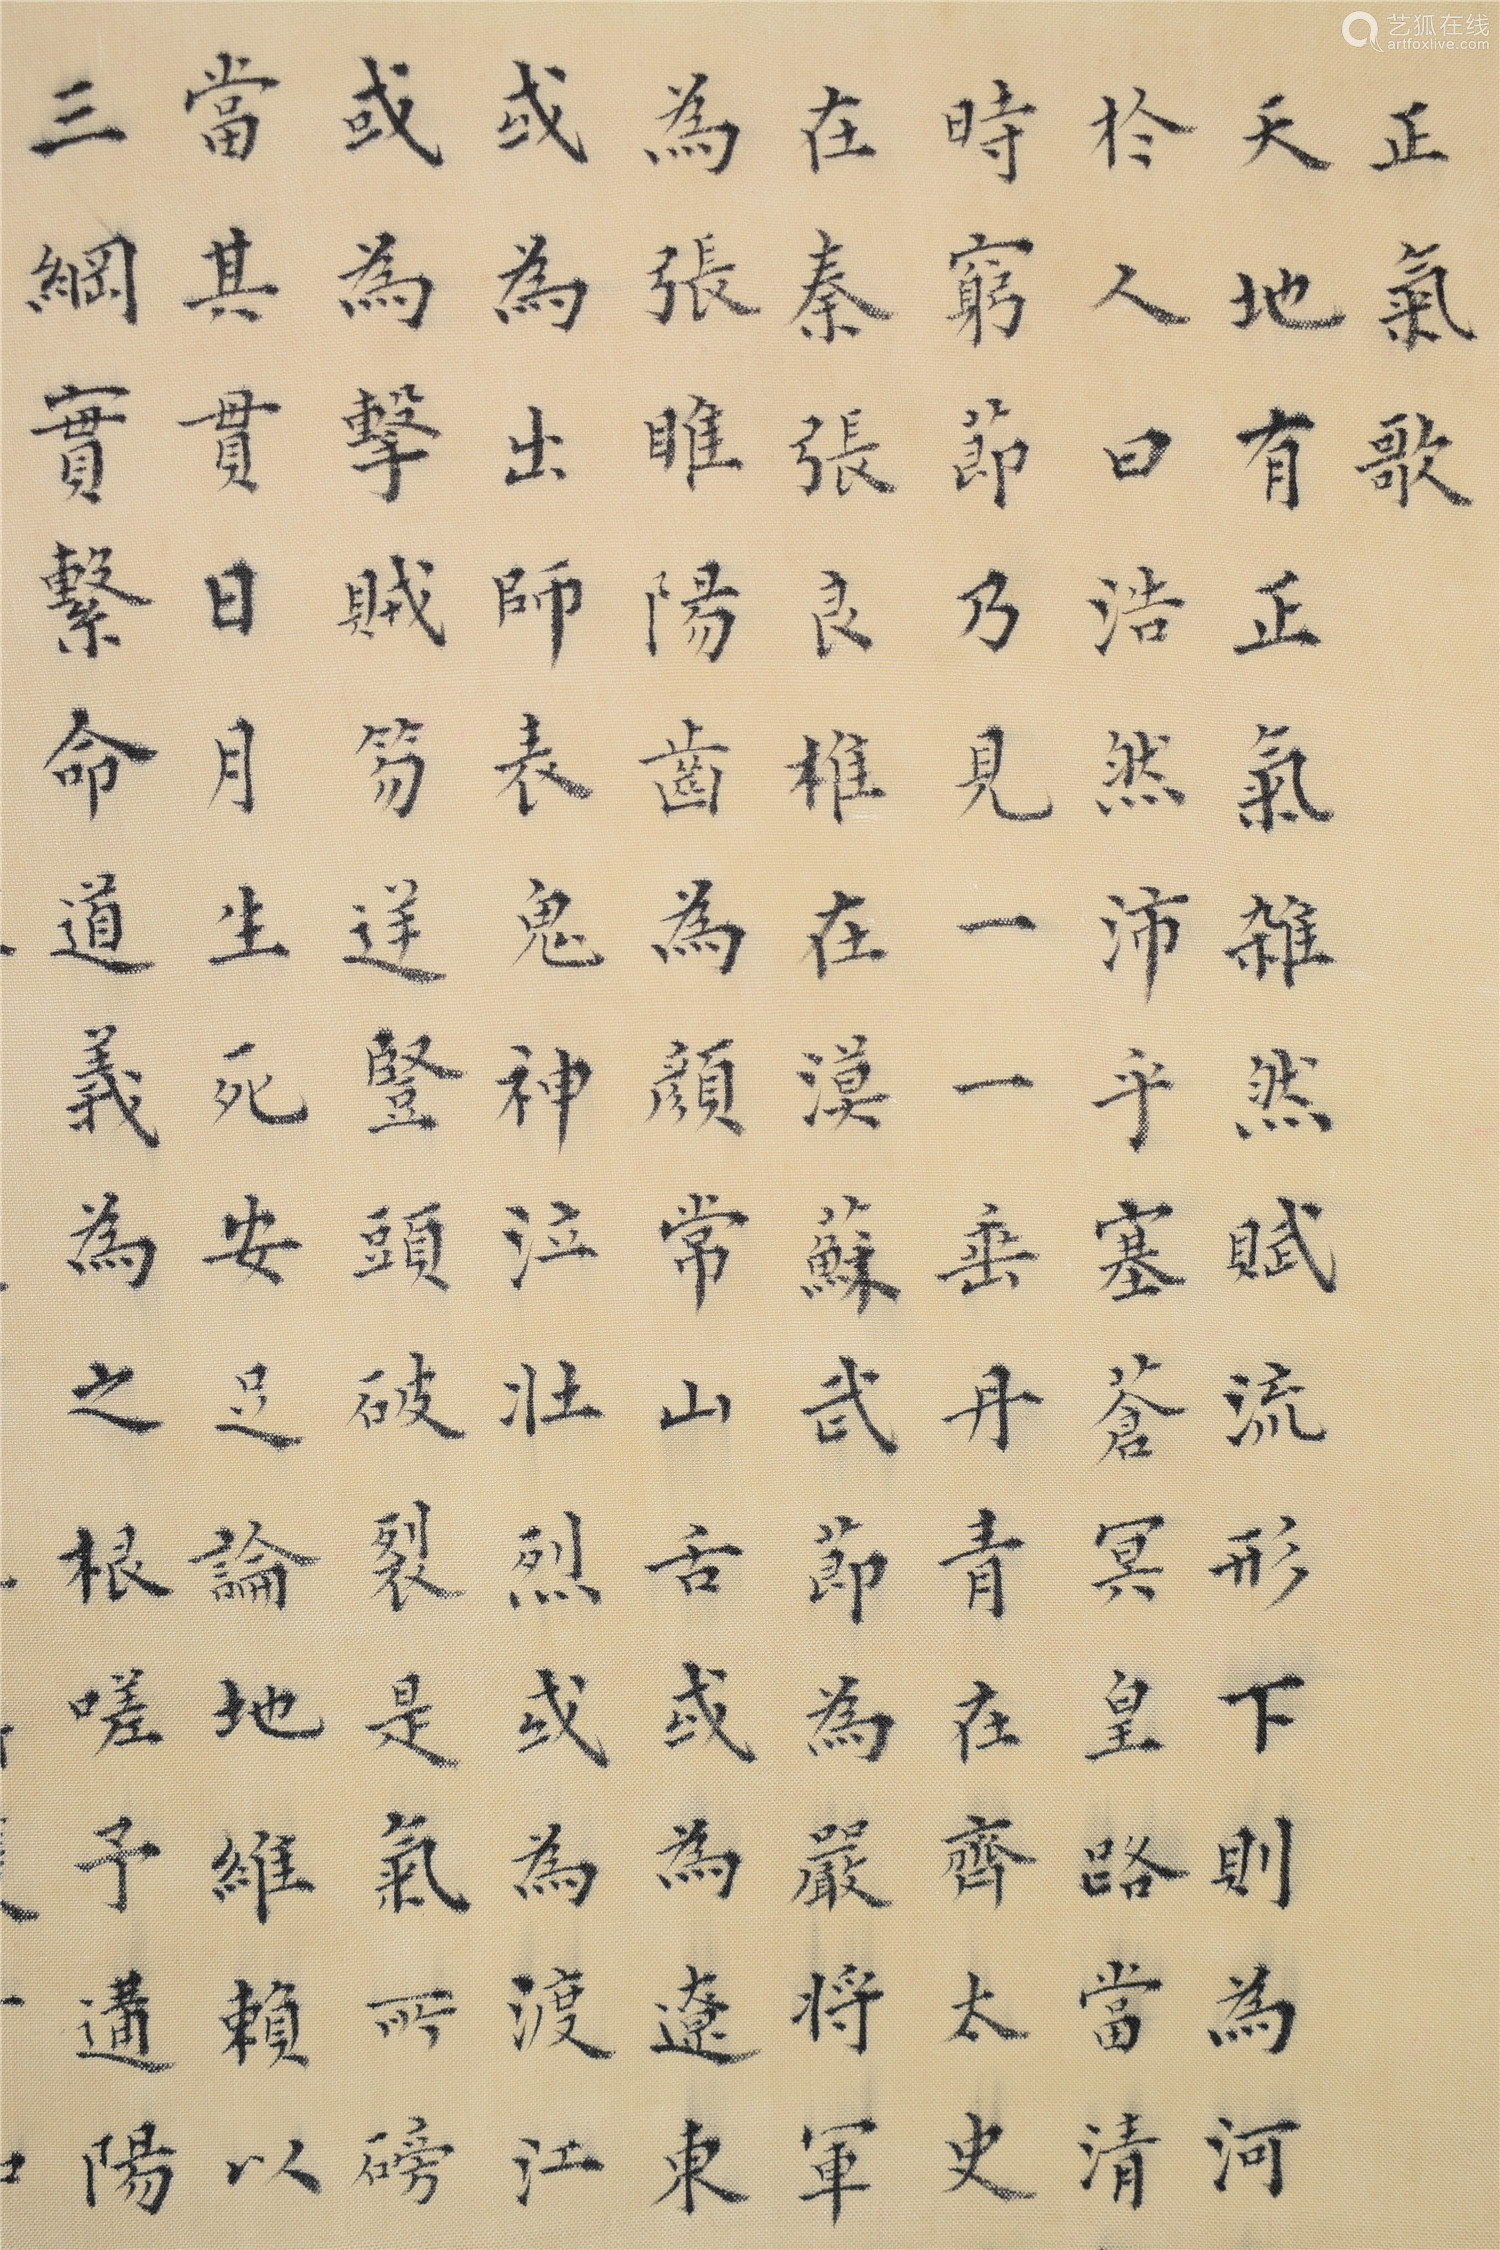 艺狐在线
artfoxlive.com
正氣歌
天地有正氣雜然賦流形下則為河
於人曰浩然沛乎塞蒼冥皇路當清
時窮節乃見一一垂丹青在齊太史
在秦張良椎在漠蘇武節為嚴將軍
為張睢陽齒為顏常山舌或為遼東
或為出師表鬼神泣壯烈或為渡江
或為擊賊笏逆豎頭破裂是氣所磅
當其貫日月生死安足論地維賴以
三綱實繫命道義為之根嗟予遘陽